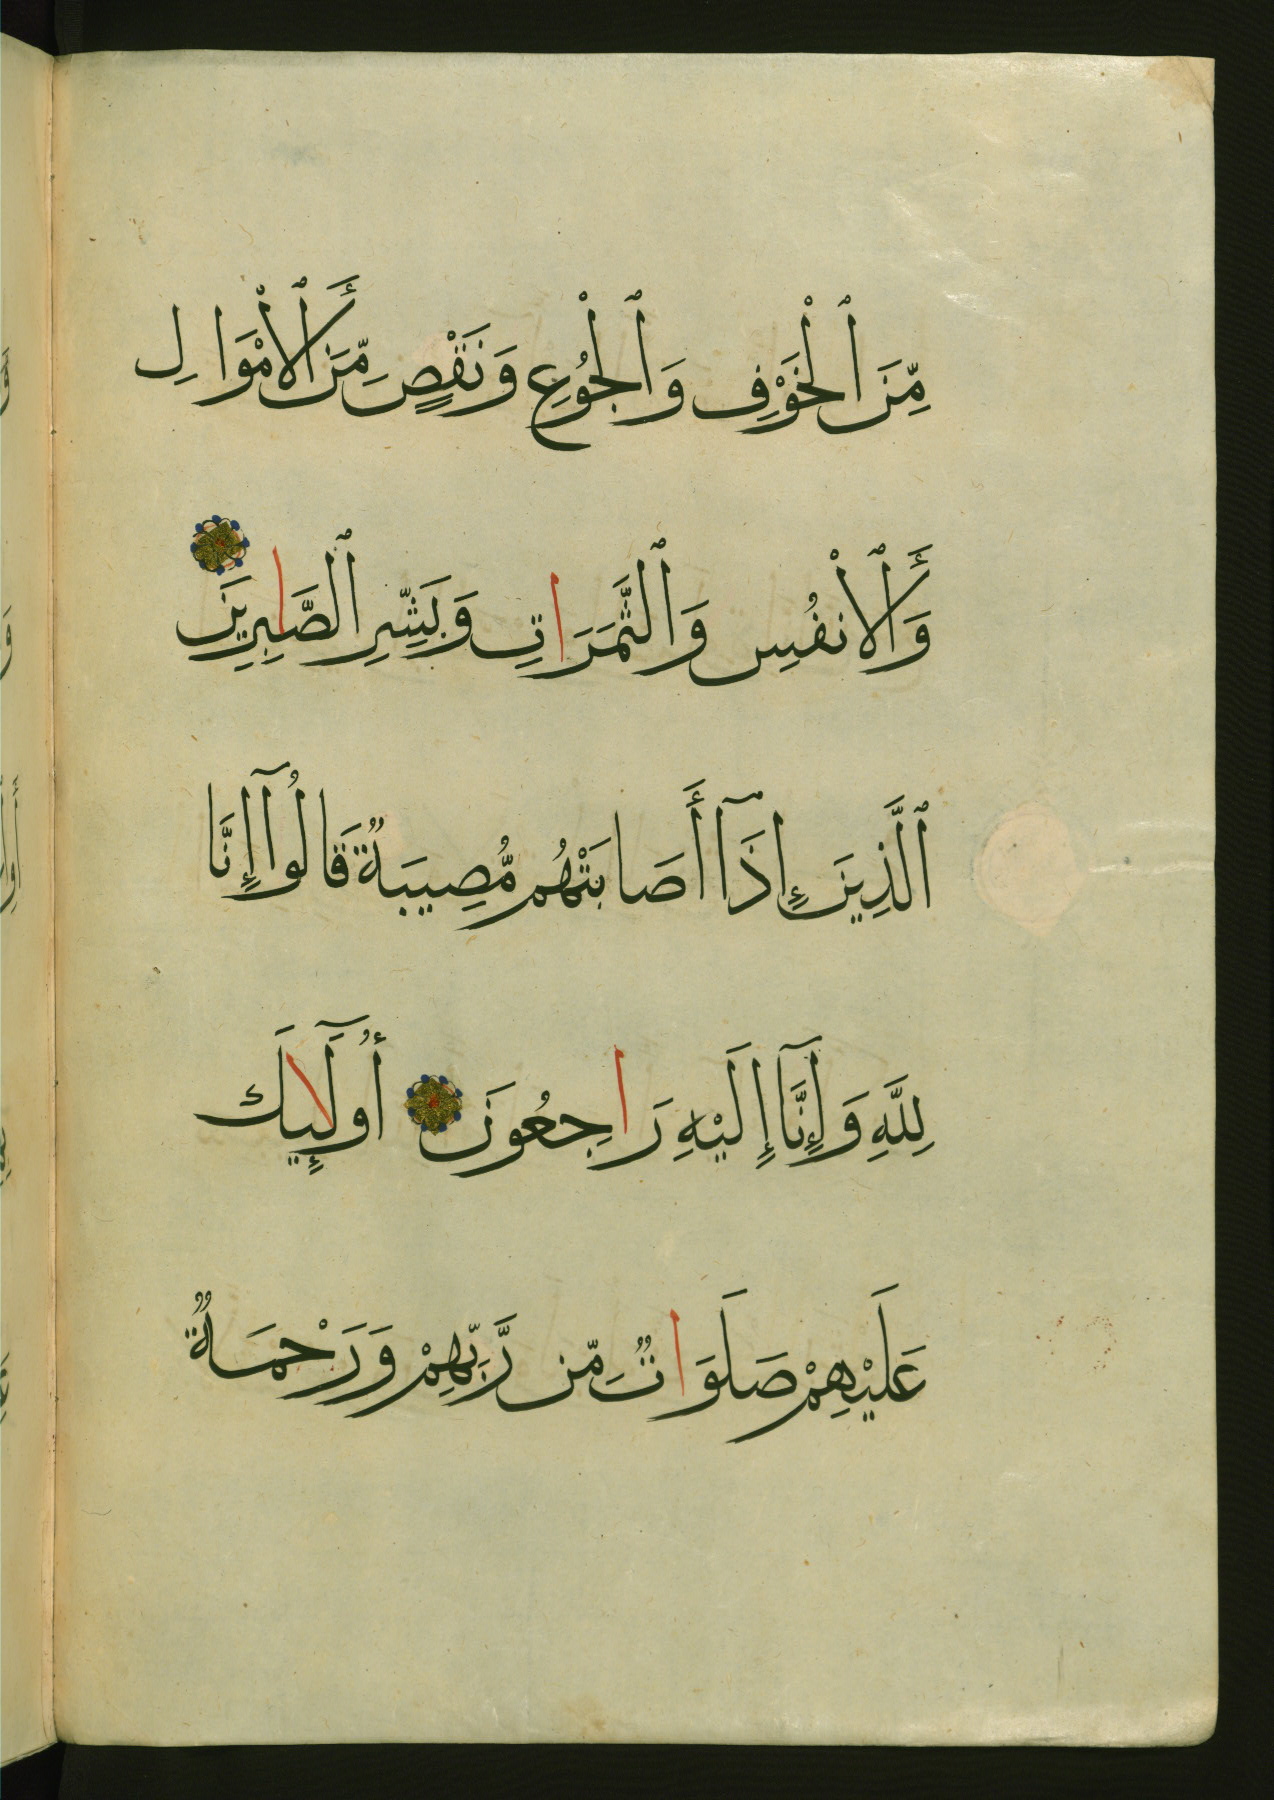 مِّنَ ٱلْخَوْفِ وَٱلْجُوعِ وَنَقْصٍ مِّنَ ٱلْأَمْوَالِ
وَٱلْأَنفُسِ وَٱلثَّمَرَاتِ وَبَشِّرِ ٱلصَّابِرِينَ
ٱلَّذِينَ إِذَآ أَصَابَتْهُم مُّصِيبَةٌ قَالُوٓا إِنَّا
لِلَّهِ وَإِنَّآ إِلَيْهِ رَاجِعُونَ أُولَآئِكَ
عَلَيْهِمْ صَلَوَاتٌ مِّن رَّبِّهِمْ وَرَحْمَةٌ